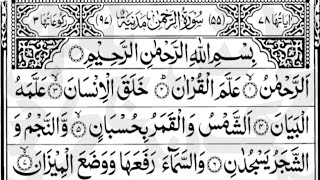 اٰیَاتُهَا ٧٨ (٥٥) سُوْرَةُ الرَّحْمٰنِ مَدَنِیَّةٌ (٩٧) رُكُوْعَاتُهَا ٣
بِسْمِ اللّٰهِ الرَّحْمٰنِ الرَّحِیْمِ
اَلرَّحْمٰنُ ۙ ١ عَلَّمَ الْقُرْاٰنَ ؕ ٢ خَلَقَ الْاِنْسَانَ ۙ ٣ عَلَّمَهُ
الْبَیَانَ ٤ اَلشَّمْسُ وَ الْقَمَرُ بِحُسْبَانٍ ٥ وَّ النَّجْمُ وَ
الشَّجَرُ یَسْجُدٰنِ ٦ وَ السَّمَآءَ رَفَعَهَا وَ وَضَعَ الْمِیْزَانَ ۙ ٧